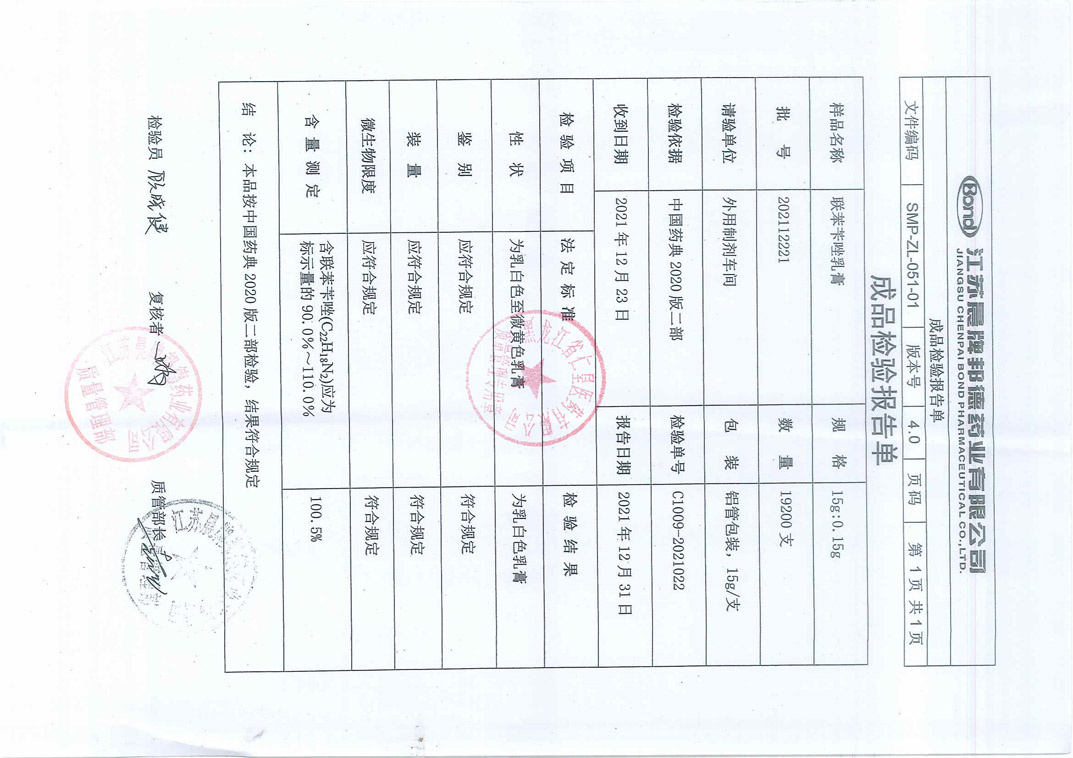 Bond 江苏晨牌邦德药业有限公司
JIANGSU CHENPAI BOND PHARMACEUTICAL CO.,LTD.
成品检验报告单
文件编码 SMP-ZL-051-01 版本号 4.0 页码 第 1 页 共 1 页
成品检验报告单
样品名称 联苯苄唑乳膏 规格 15g:0.15g
批号 202112221 数量 19200 支
请验单位 外用制剂车间 包装 铝管包装，15g/支
检验依据 中国药典 2020 版二部 检验单号 C1009-2021022
收到日期 2021 年 12 月 23 日 报告日期 2021 年 12 月 31 日
检验项目 法定标准 检验结果
性状 为乳白色至微黄色乳膏 为乳白色乳膏
鉴别 应符合规定 符合规定
装量 应符合规定 符合规定
微生物限度 应符合规定 符合规定
含量测定 含联苯苄唑(C22H18N2)应为 100.5%
标示量的 90.0%～110.0%
结论：本品按中国药典 2020 版二部检验，结果符合规定
检验员 复核者 质管部长
质量管理部